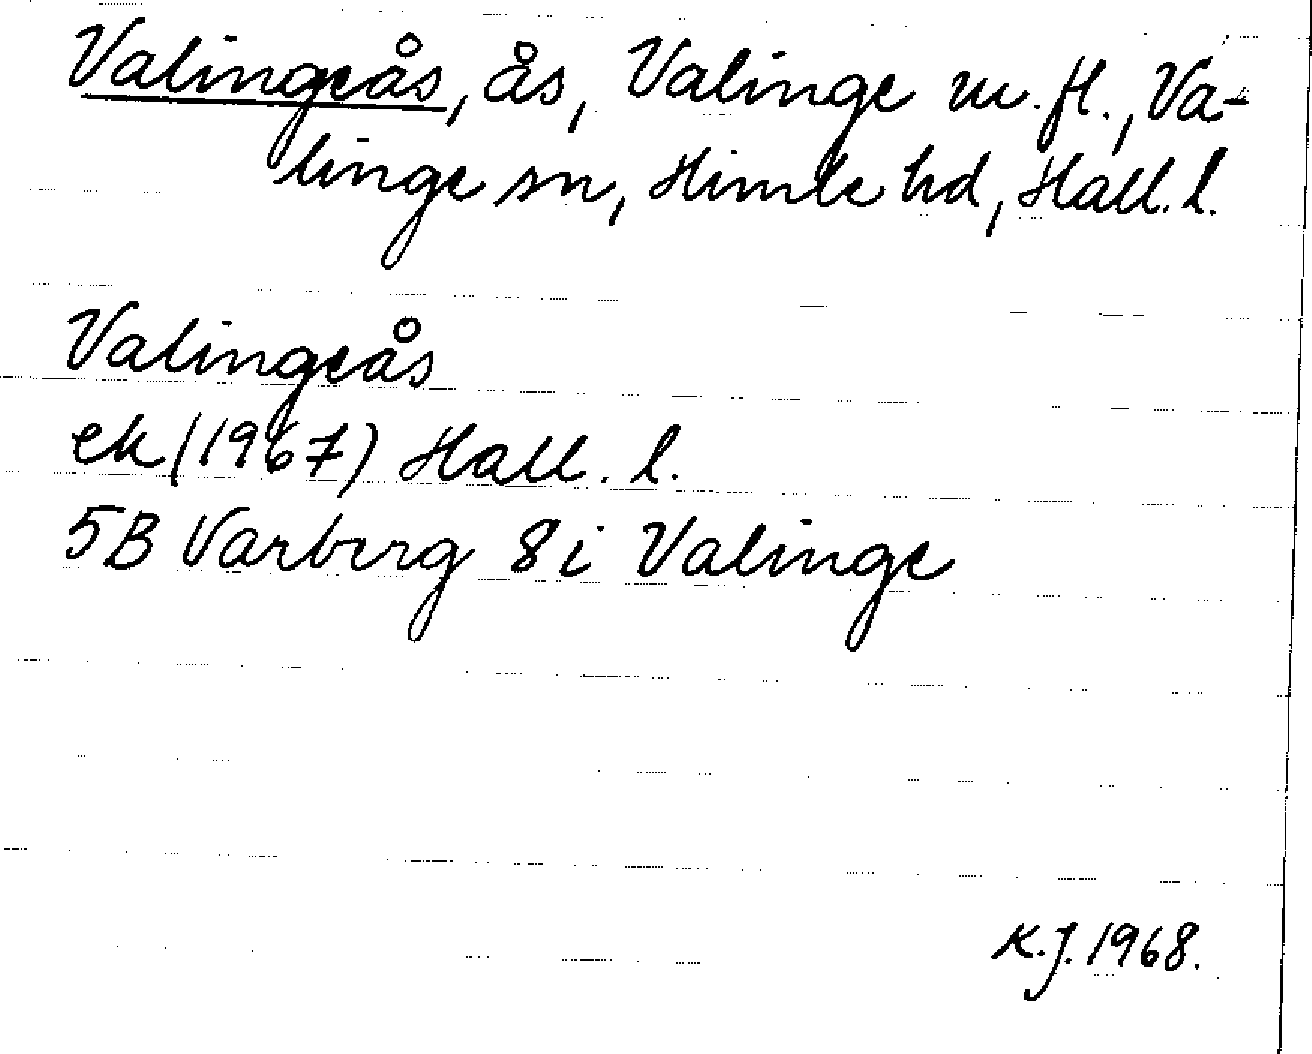 Valingeås, ås, Valinge m. fl., Va-
linge sn, Himle hd, Hall. l.
Valingeås
ek (1967) Hall. l.
5B Varberg 8i Valinge
K.J. 1968.